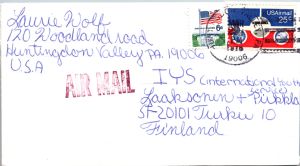 Laurie Wolf
120 Woodland road
Huntingdon Valley PA. 19006
USA
AIR MAIL
6c
USAirmail
25c
19006
IYS (international Youth
Service)
Laaksonin + Pirkkla
SF-20101 Turku 10
Finland